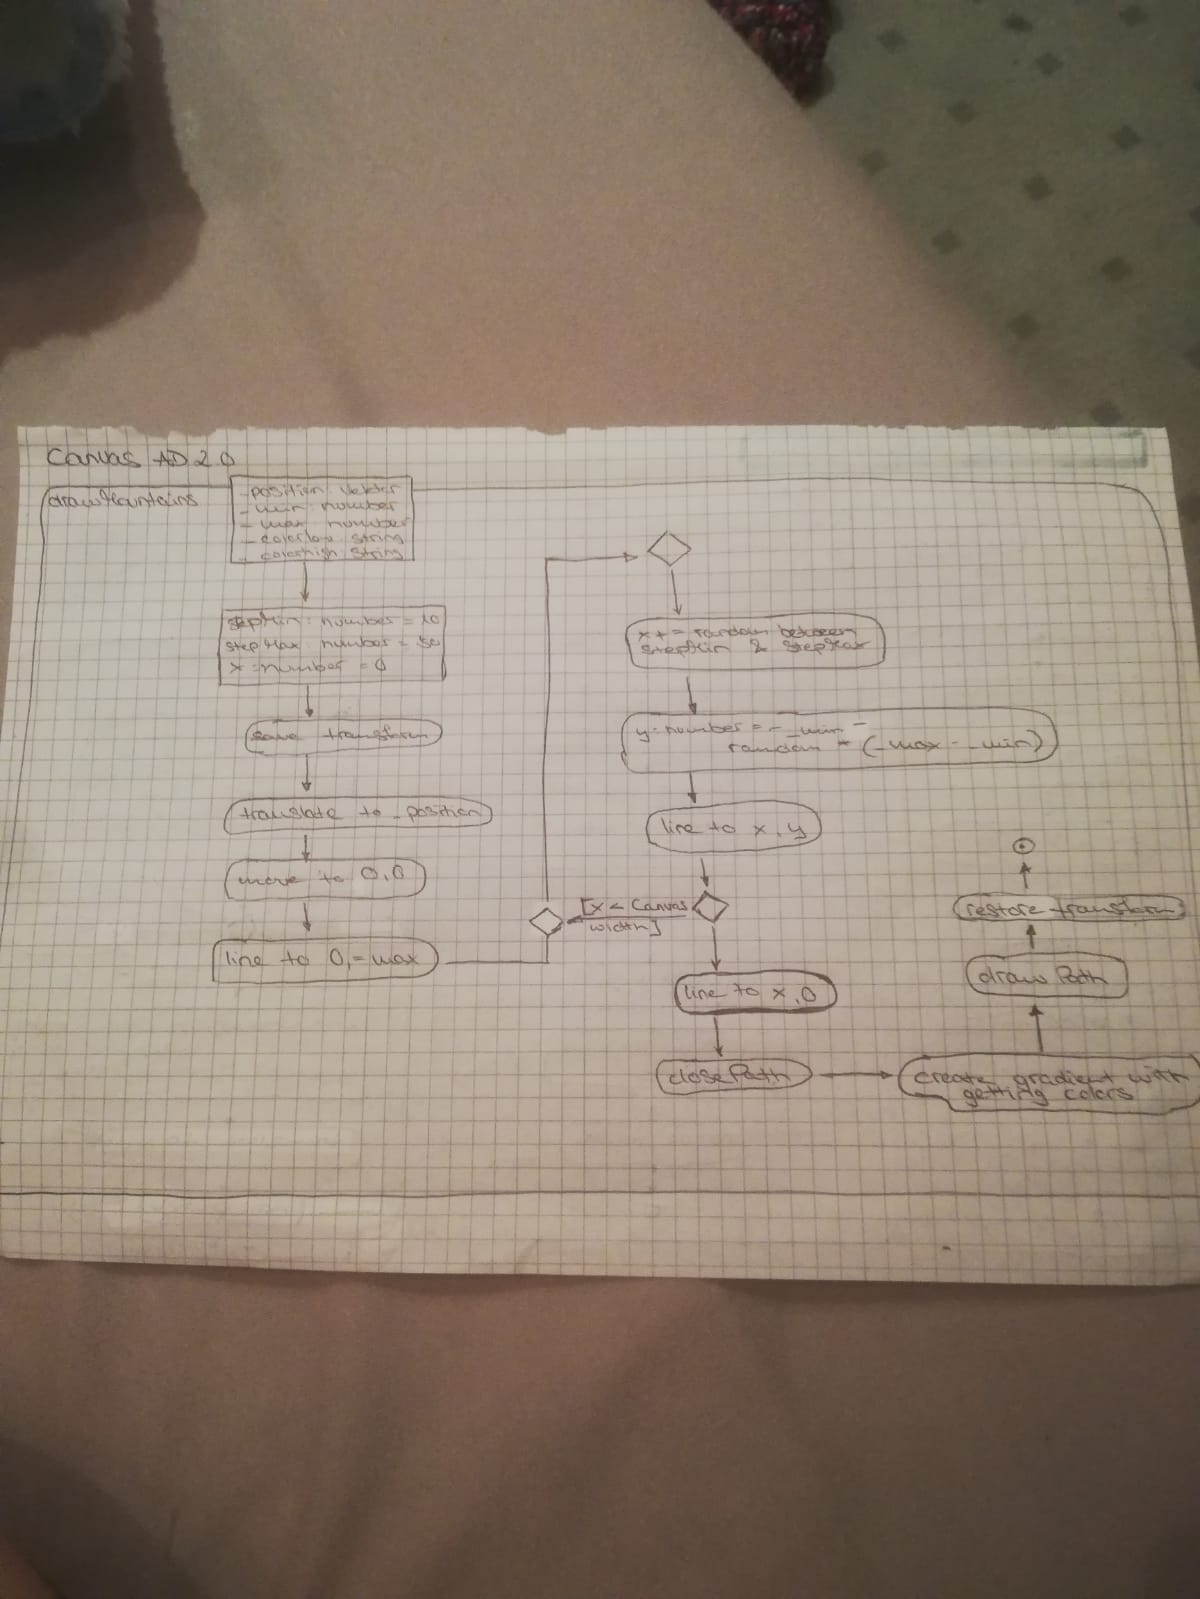 Canvas AD 2.0
drawMountains
_position: Vektor
_min: number
_max: number
_colorlow: String
_colorhigh: String
stepMin: number = 10
stepMax: number = 50
x: number = 0
save transform
translate to _position
move to 0,0
line to 0, -_max
x += random between
stepMin & stepMax
y: number = - _min -
random * (_max - _min)
line to x, y
[x < Canvas
width]
line to x, 0
closePath
create gradient with
getting colors
draw Path
restore transform